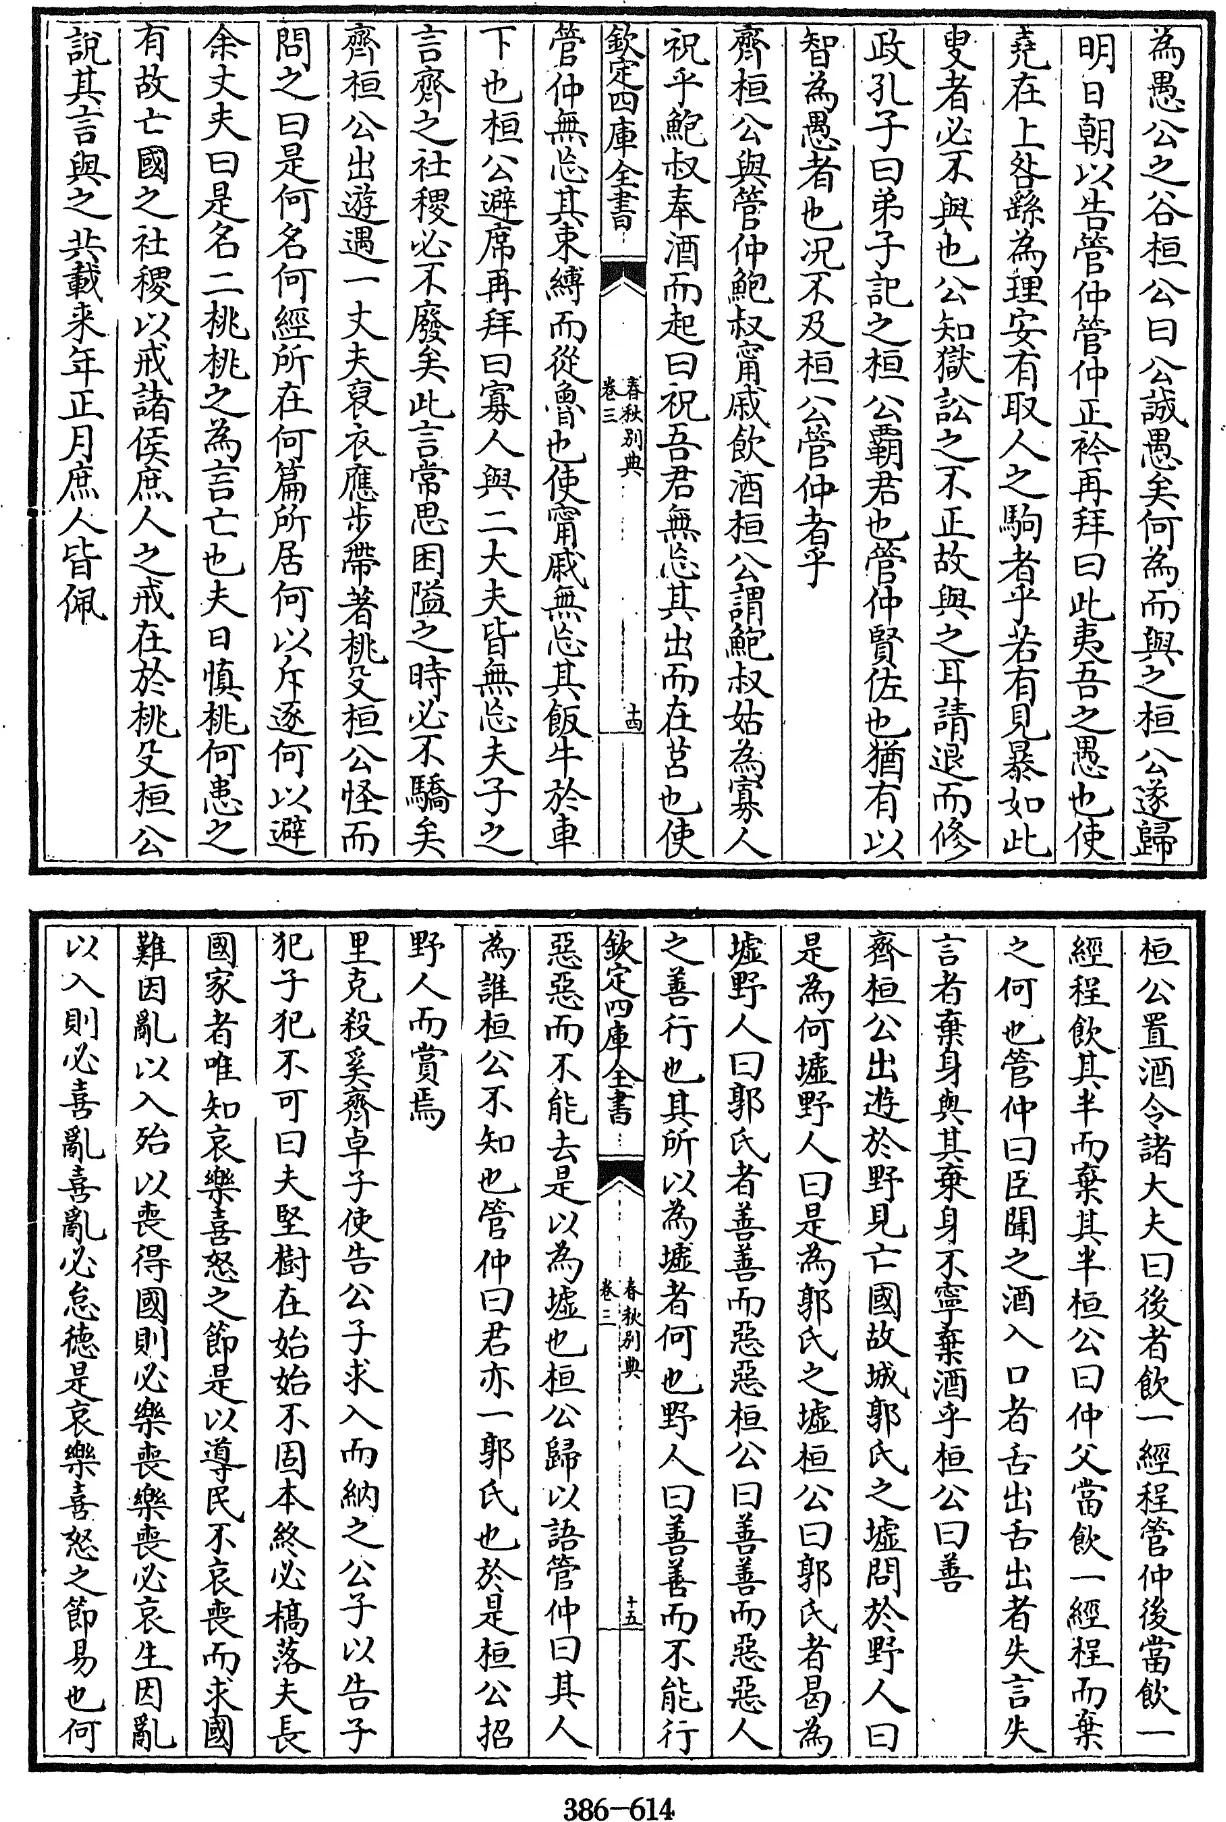 為愚公之谷桓公曰公誠愚矣何為而與之桓公遂歸
明日朝以告管仲管仲正衿再拜曰此夷吾之愚也使
堯在上咎繇為理安有取人之駒者乎若有見暴如此
叟者必不與也公知獄訟之不正故與之耳請退而修
政孔子曰弟子記之桓公霸君也管仲賢佐也猶有以
智為愚者也况不及桓公管仲者乎
齊桓公與管仲鮑叔甯戚飲酒桓公謂鮑叔姑為寡人
祝乎鮑叔奉酒而起曰祝吾君無忘其出而在莒也使
欽定四庫全書
春秋別典
卷三
十四
管仲無忘其束縛而從魯也使甯戚無忘其飯牛於車
下也桓公避席再拜曰寡人與二大夫皆無忘夫子之
言齊之社稷必不廢矣此言常思困隘之時必不驕矣
齊桓公出遊遇一丈夫裒衣應步帶著桃殳桓公怪而
問之曰是何名何經所在何篇所居何以斥逐何以避
余丈夫曰是名二桃桃之為言亡也夫日慎桃何患之
有故亡國之社稷以戒諸侯庶人之戒在於桃殳桓公
說其言與之共載来年正月庶人皆佩
桓公置酒令諸大夫曰後者飲一經程管仲後當飲一
經程飲其半而棄其半桓公曰仲父當飲一經程而棄
之何也管仲曰臣聞之酒入口者舌出舌出者失言失
言者棄身與其棄身不寧棄酒乎桓公曰善
齊桓公出遊於野見亡國故城郭氏之墟問於野人曰
是為何墟野人曰是為郭氏之墟桓公曰郭氏者曷為
墟野人曰郭氏者善善而惡惡桓公曰善善而惡惡人
之善行也其所以為墟者何也野人曰善善而不能行
欽定四庫全書
春秋別典
卷三
十五
惡惡而不能去是以為墟也桓公歸以語管仲曰其人
為誰桓公不知也管仲曰君亦一郭氏也於是桓公招
野人而賞焉
里克殺奚齊卓子使告公子求入而納之公子以告子
犯子犯不可曰夫堅樹在始始不固本終必槁落夫長
國家者唯知哀樂喜怒之節是以導民不哀喪而求國
難因亂以入殆以喪得國則必樂喪樂喪必哀生因亂
以入則必喜亂喜亂必怠德是哀樂喜怒之節易也何
386-614